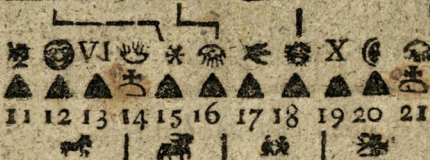 VI X
11 12 13 14 15 16 17 18 19 20 21